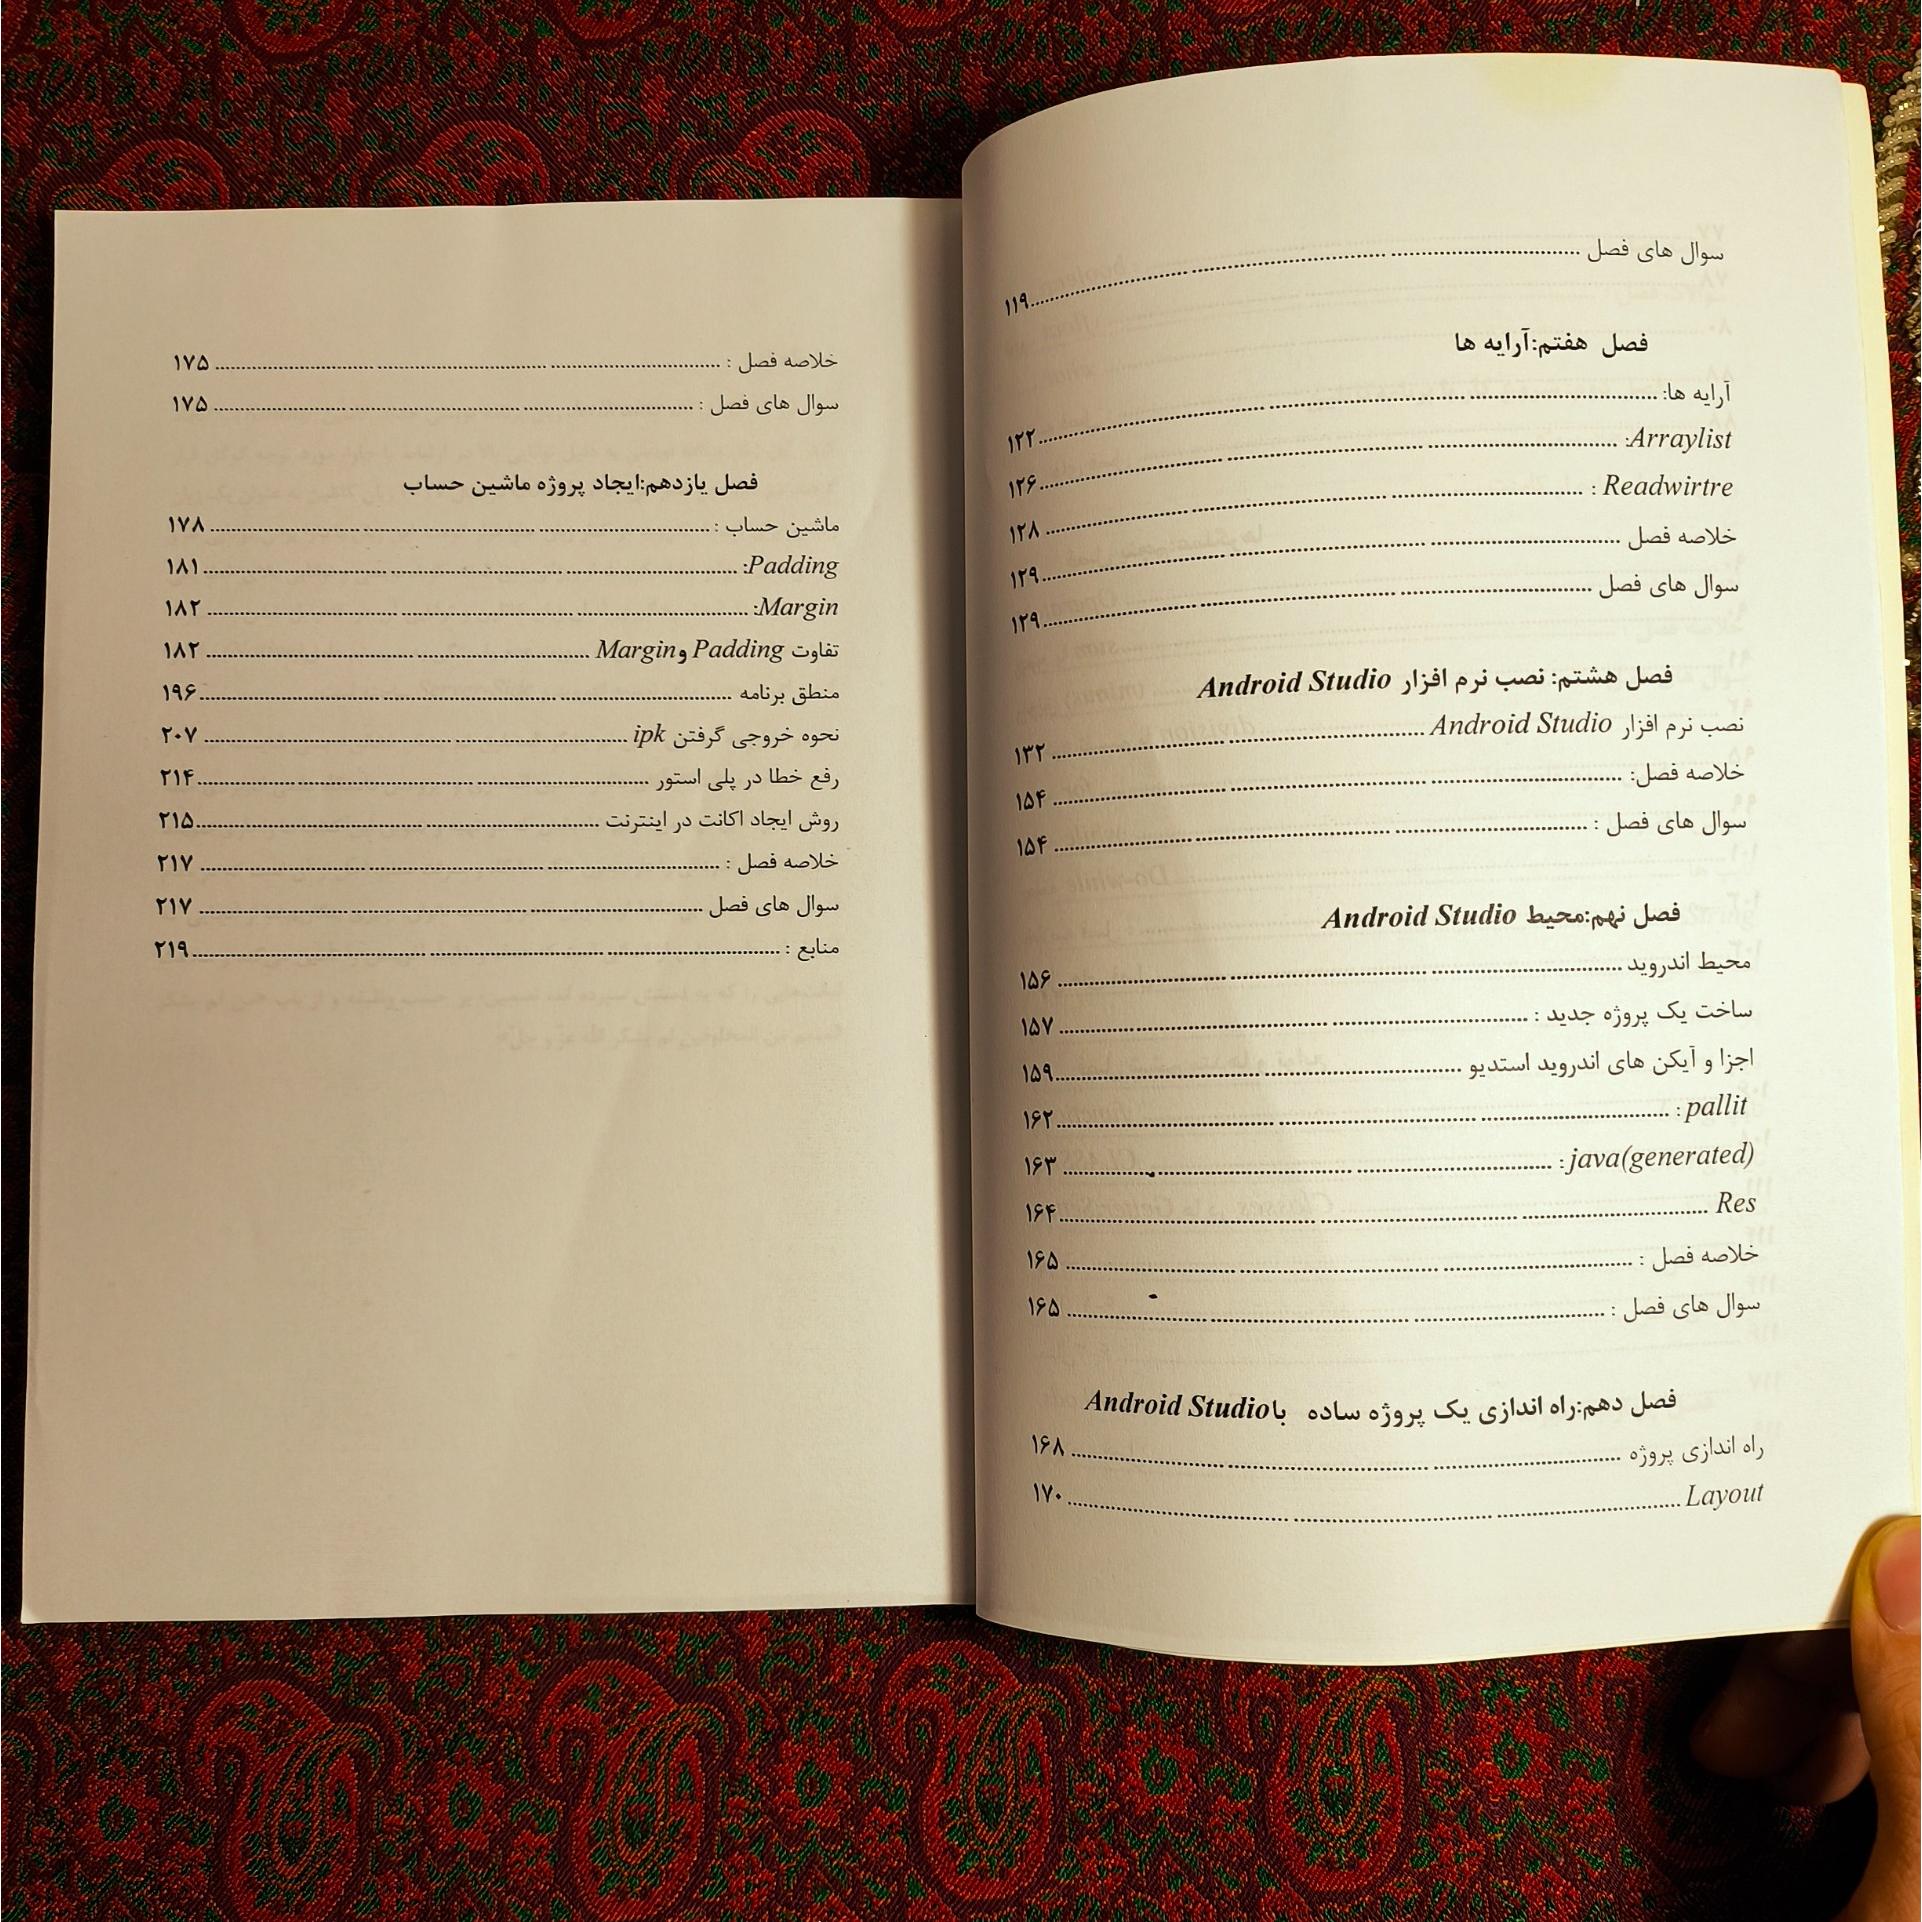 سوال های فصل ........ ۱۱۹
فصل هفتم:آرایه ها
آرایه ها: ........ ۱۲۲
Arraylist: ........ ۱۲۶
Readwirtre : ........ ۱۲۸
خلاصه فصل ........ ۱۲۹
سوال های فصل ........ ۱۲۹
فصل هشتم: نصب نرم افزار Android Studio
نصب نرم افزار Android Studio ........ ۱۳۲
خلاصه فصل: ........ ۱۵۴
سوال های فصل : ........ ۱۵۴
فصل نهم:محیط Android Studio
محیط اندروید ........ ۱۵۶
ساخت یک پروژه جدید : ........ ۱۵۷
اجزا و آیکن های اندروید استدیو ........ ۱۵۹
pallit : ........ ۱۶۲
java(generated) : ........ ۱۶۳
Res ........ ۱۶۴
خلاصه فصل : ........ ۱۶۵
سوال های فصل : ........ ۱۶۵
فصل دهم:راه اندازی یک پروژه ساده باAndroid Studio
راه اندازی پروژه ........ ۱۶۸
Layout ........ ۱۷۰
خلاصه فصل : ........ ۱۷۵
سوال های فصل : ........ ۱۷۵
فصل یازدهم:ایجاد پروژه ماشین حساب
ماشین حساب : ........ ۱۷۸
Padding: ........ ۱۸۱
Margin: ........ ۱۸۲
تفاوت Padding وMargin ........ ۱۸۲
منطق برنامه ........ ۱۹۶
نحوه خروجی گرفتن ipk ........ ۲۰۷
رفع خطا در پلی استور ........ ۲۱۴
روش ایجاد اکانت در اینترنت ........ ۲۱۵
خلاصه فصل : ........ ۲۱۷
سوال های فصل ........ ۲۱۷
منابع : ........ ۲۱۹